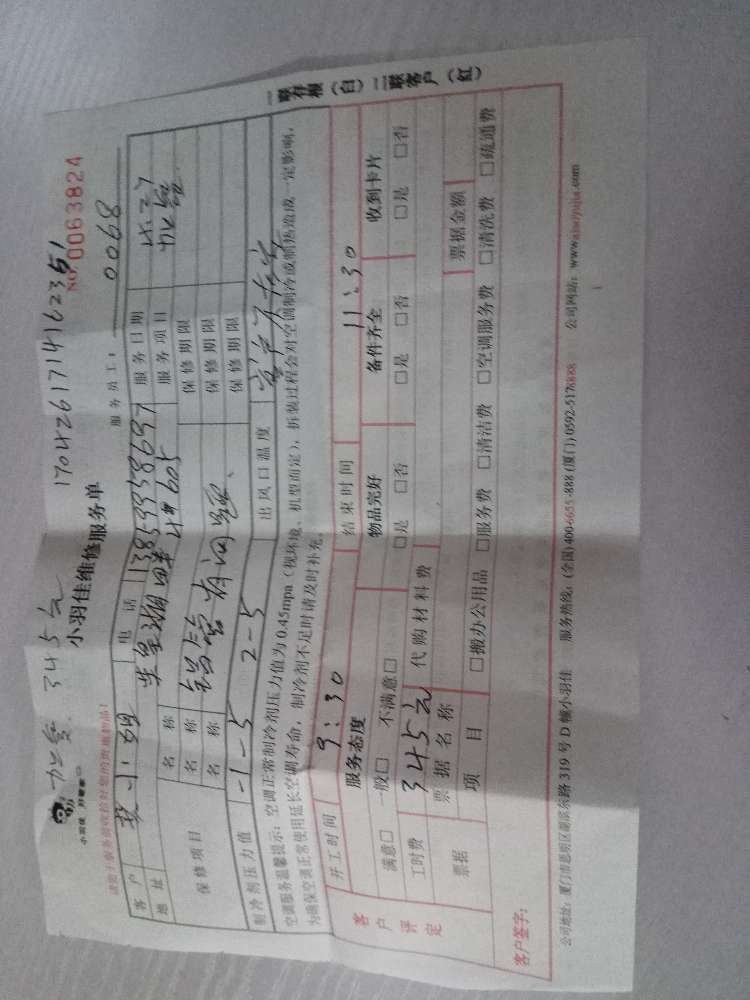 加雪 345元 1704261714162351
小羽佳维修服务单 NO.0063824
小羽佳 好管家
服务员工： 0068
客户 小 电话 服务日期
地址 服务项目 加雪
保修项目 名称 铝管有问题、 保修期限
名称 保修期限
名称 保修期限
制冷剂压力值 -1-5 2-5 出风口温度
空调服务温馨提示：空调正常制冷剂压力值为0.45mpa（视环境、机型而定），拆装过程会对空调制冷或制热造成一定影响，
为确保空调正常使用延长空调寿命，制冷剂不足时请及时补充。
开工时间 9:30 结束时间 11:30
客户评定 服务态度 物品完好 备件齐全 收到卡片
满意□ 一般□ 不满意□ □是 □否 □是 □否 □是 □否
工时费 345元 代购材料费
票据 票据名称 票据金额
项目 □搬办公用品 □服务费 □清洁费 □空调服务费 □清洗费 □疏通费
客户签字：
公司地址：厦门市思明区湖滨东路319号D幢小羽佳 服务热线：(全国)400-6655-888 (厦门)0592-5178888 公司网站：www.xiaoyujia.com
一联存根（白）二联客户（红）